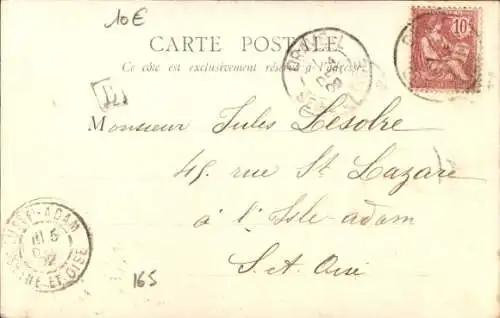 10€
CARTE POSTALE
Ce côté est exclusivement réservé à l'adresse
10
Monsieur Jules Lesobre
45, rue St Lazare
à l'Isle-adam
S. et Oise
ISLE-ADAM
5
SEINE ET OISE
165